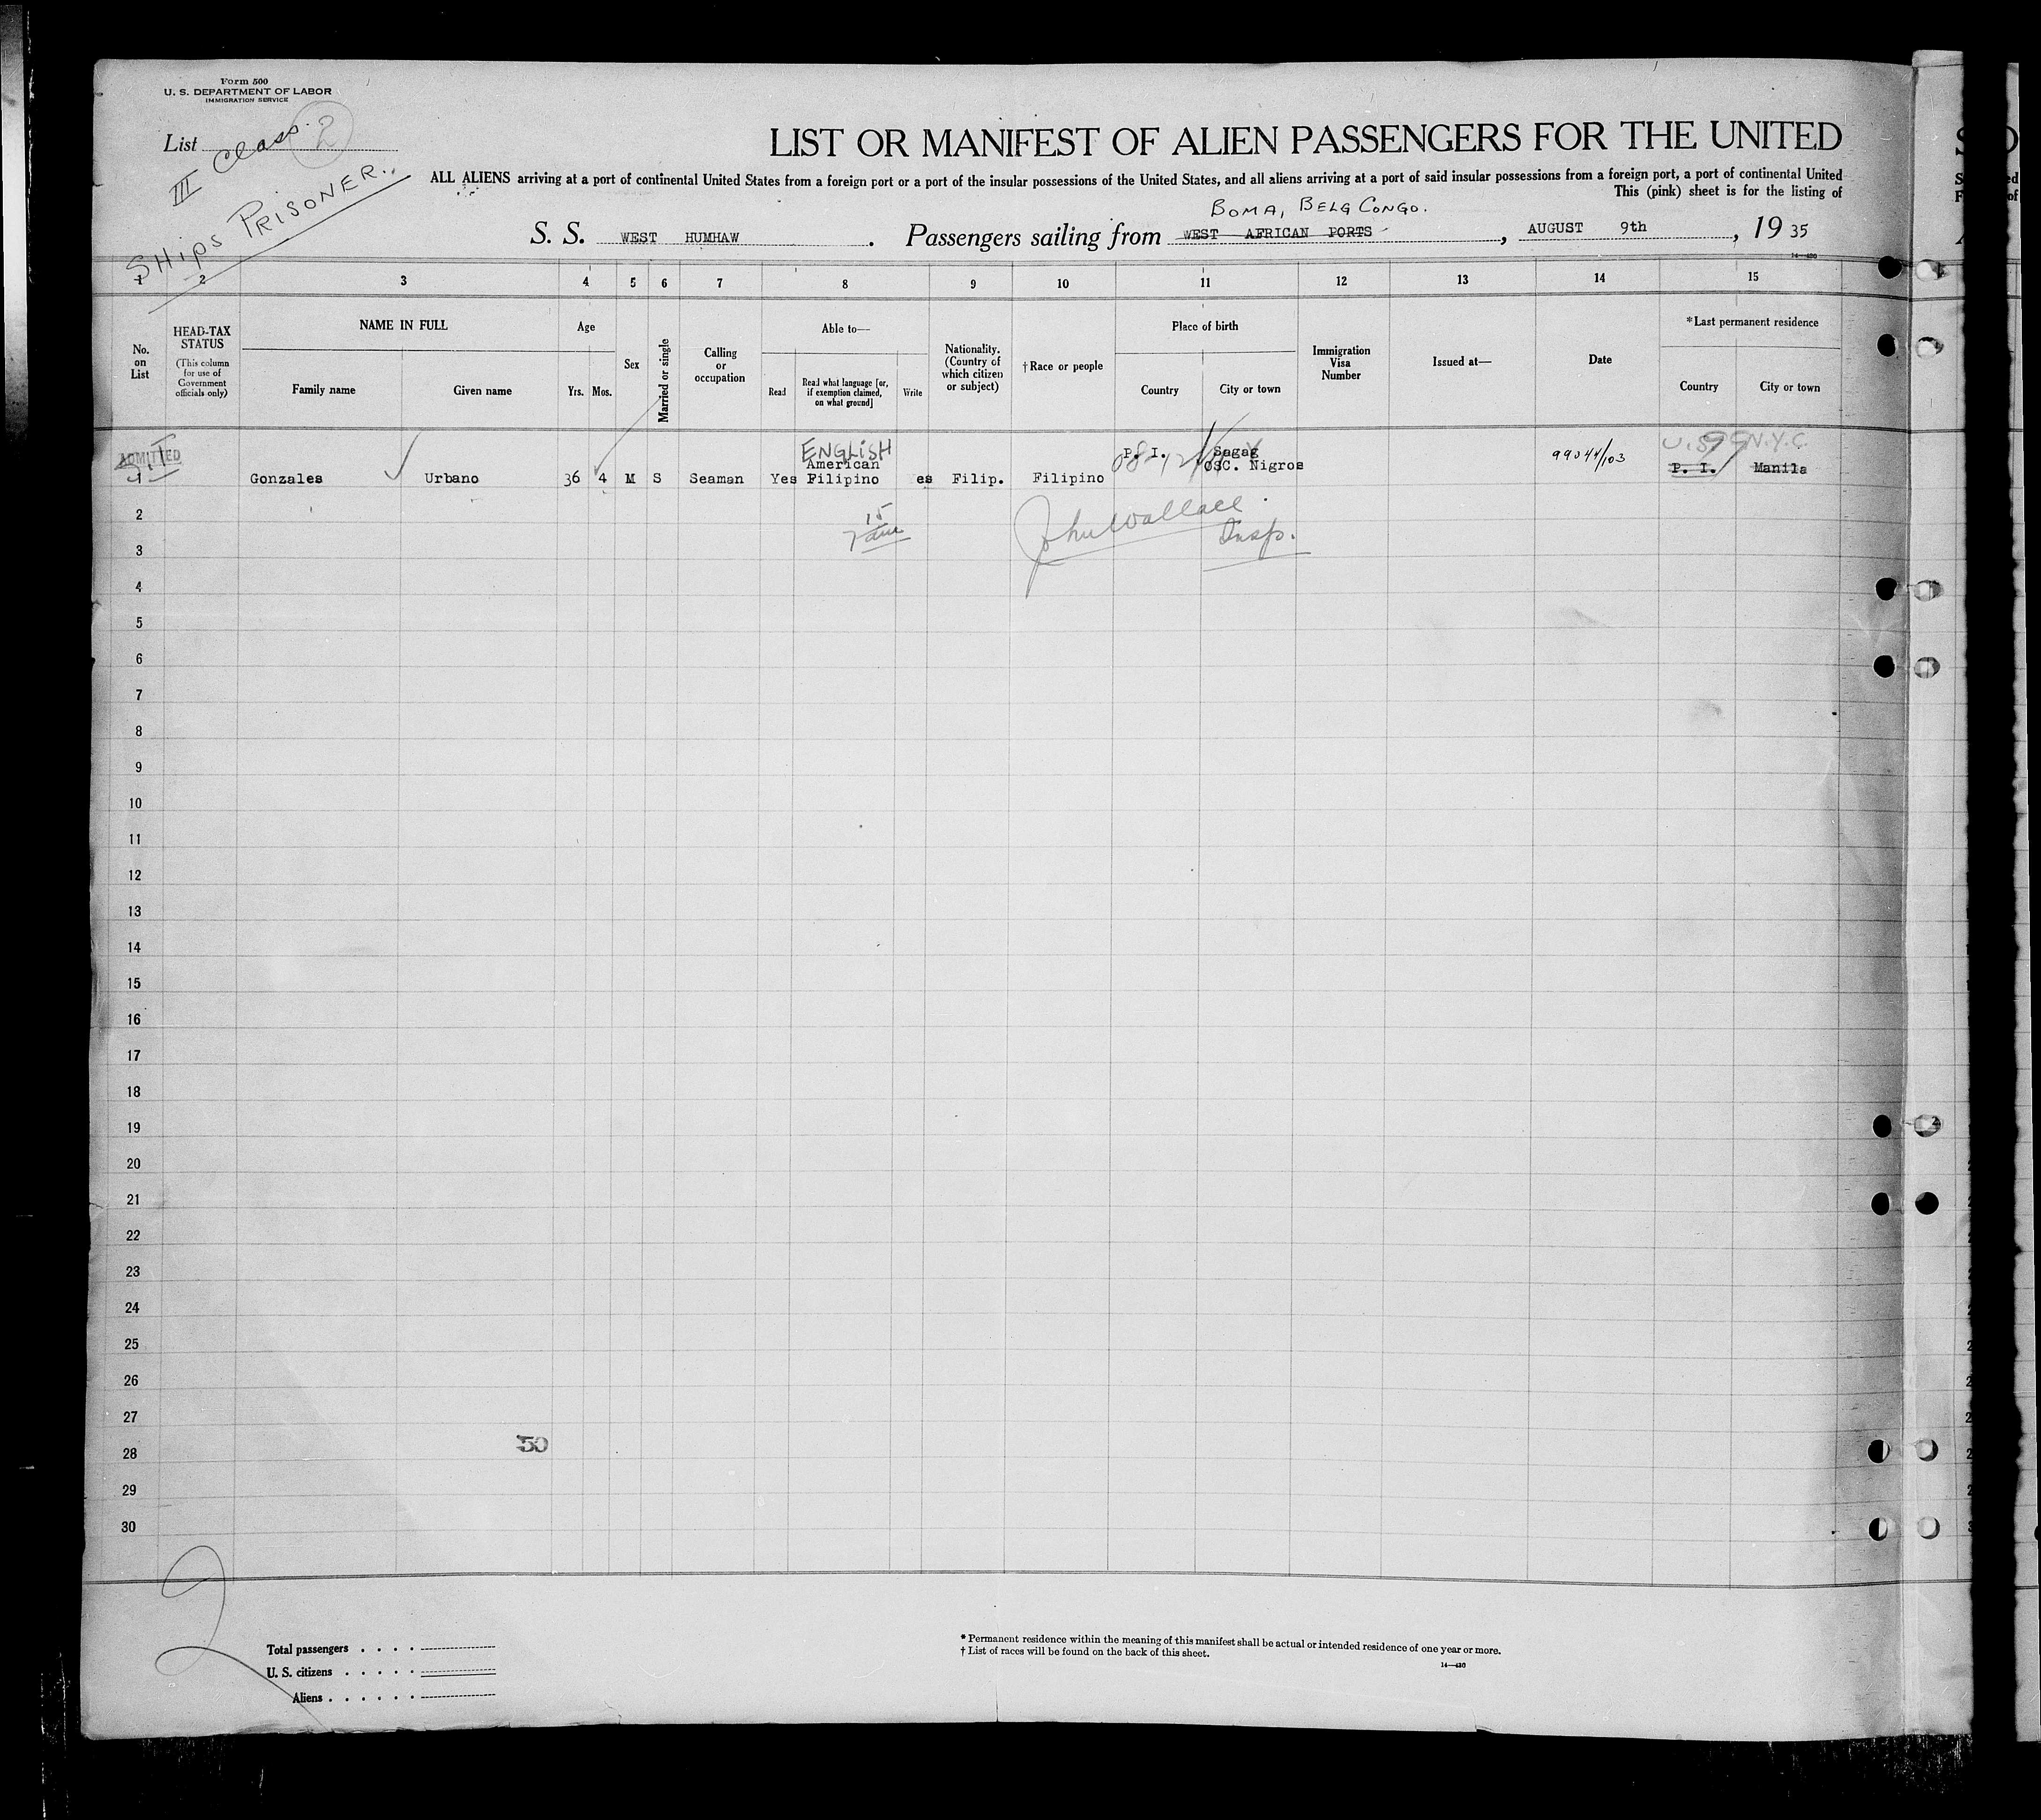 Form 500
U. S. DEPARTMENT OF LABOR
IMMIGRATION SERVICE
List
III Class. 2
SHips PRISONER.
LIST OR MANIFEST OF ALIEN PASSENGERS FOR THE UNITED
ALL ALIENS arriving at a port of continental United States from a foreign port or a port of the insular possessions of the United States, and all aliens arriving at a port of said insular possessions from a foreign port, a port of continental United
This (pink) sheet is for the listing of
BOMA, BELG CONGO.
S. S. WEST HUMHAW . Passengers sailing from WEST AFRICAN PORTS , AUGUST 9th , 19 35
14—430
1 2 3 4 5 6 7 8 9 10 11 12 13 14 15
No. on List
HEAD-TAX STATUS
(This column for use of Government officials only)
NAME IN FULL
Family name Given name
Age
Yrs. Mos.
Sex
Married or single
Calling or occupation
Able to—
Read
Read what language [or, if exemption claimed, on what ground]
Write
Nationality. (Country of which citizen or subject)
†Race or people
Place of birth
Country City or town
Immigration Visa Number
Issued at—
Date
*Last permanent residence
Country City or town
ADMITTED
ENGLISH P. I. Sagay 99044/103 U.S. N.Y.C.
American OSC. Nigros P. I. Manila
1 Gonzales Urbano 36 4 M S Seaman Yes Filipino es Filip. Filipino
John Wallace
Insp.
2
3
4
5
6
7
8
9
10
11
12
13
14
15
16
17
18
19
20
21
22
23
24
25
26
27
50
28
29
30
2
Total passengers . . . .
U. S. citizens . . . . .
Aliens . . . . . .
* Permanent residence within the meaning of this manifest shall be actual or intended residence of one year or more.
† List of races will be found on the back of this sheet.
14—430